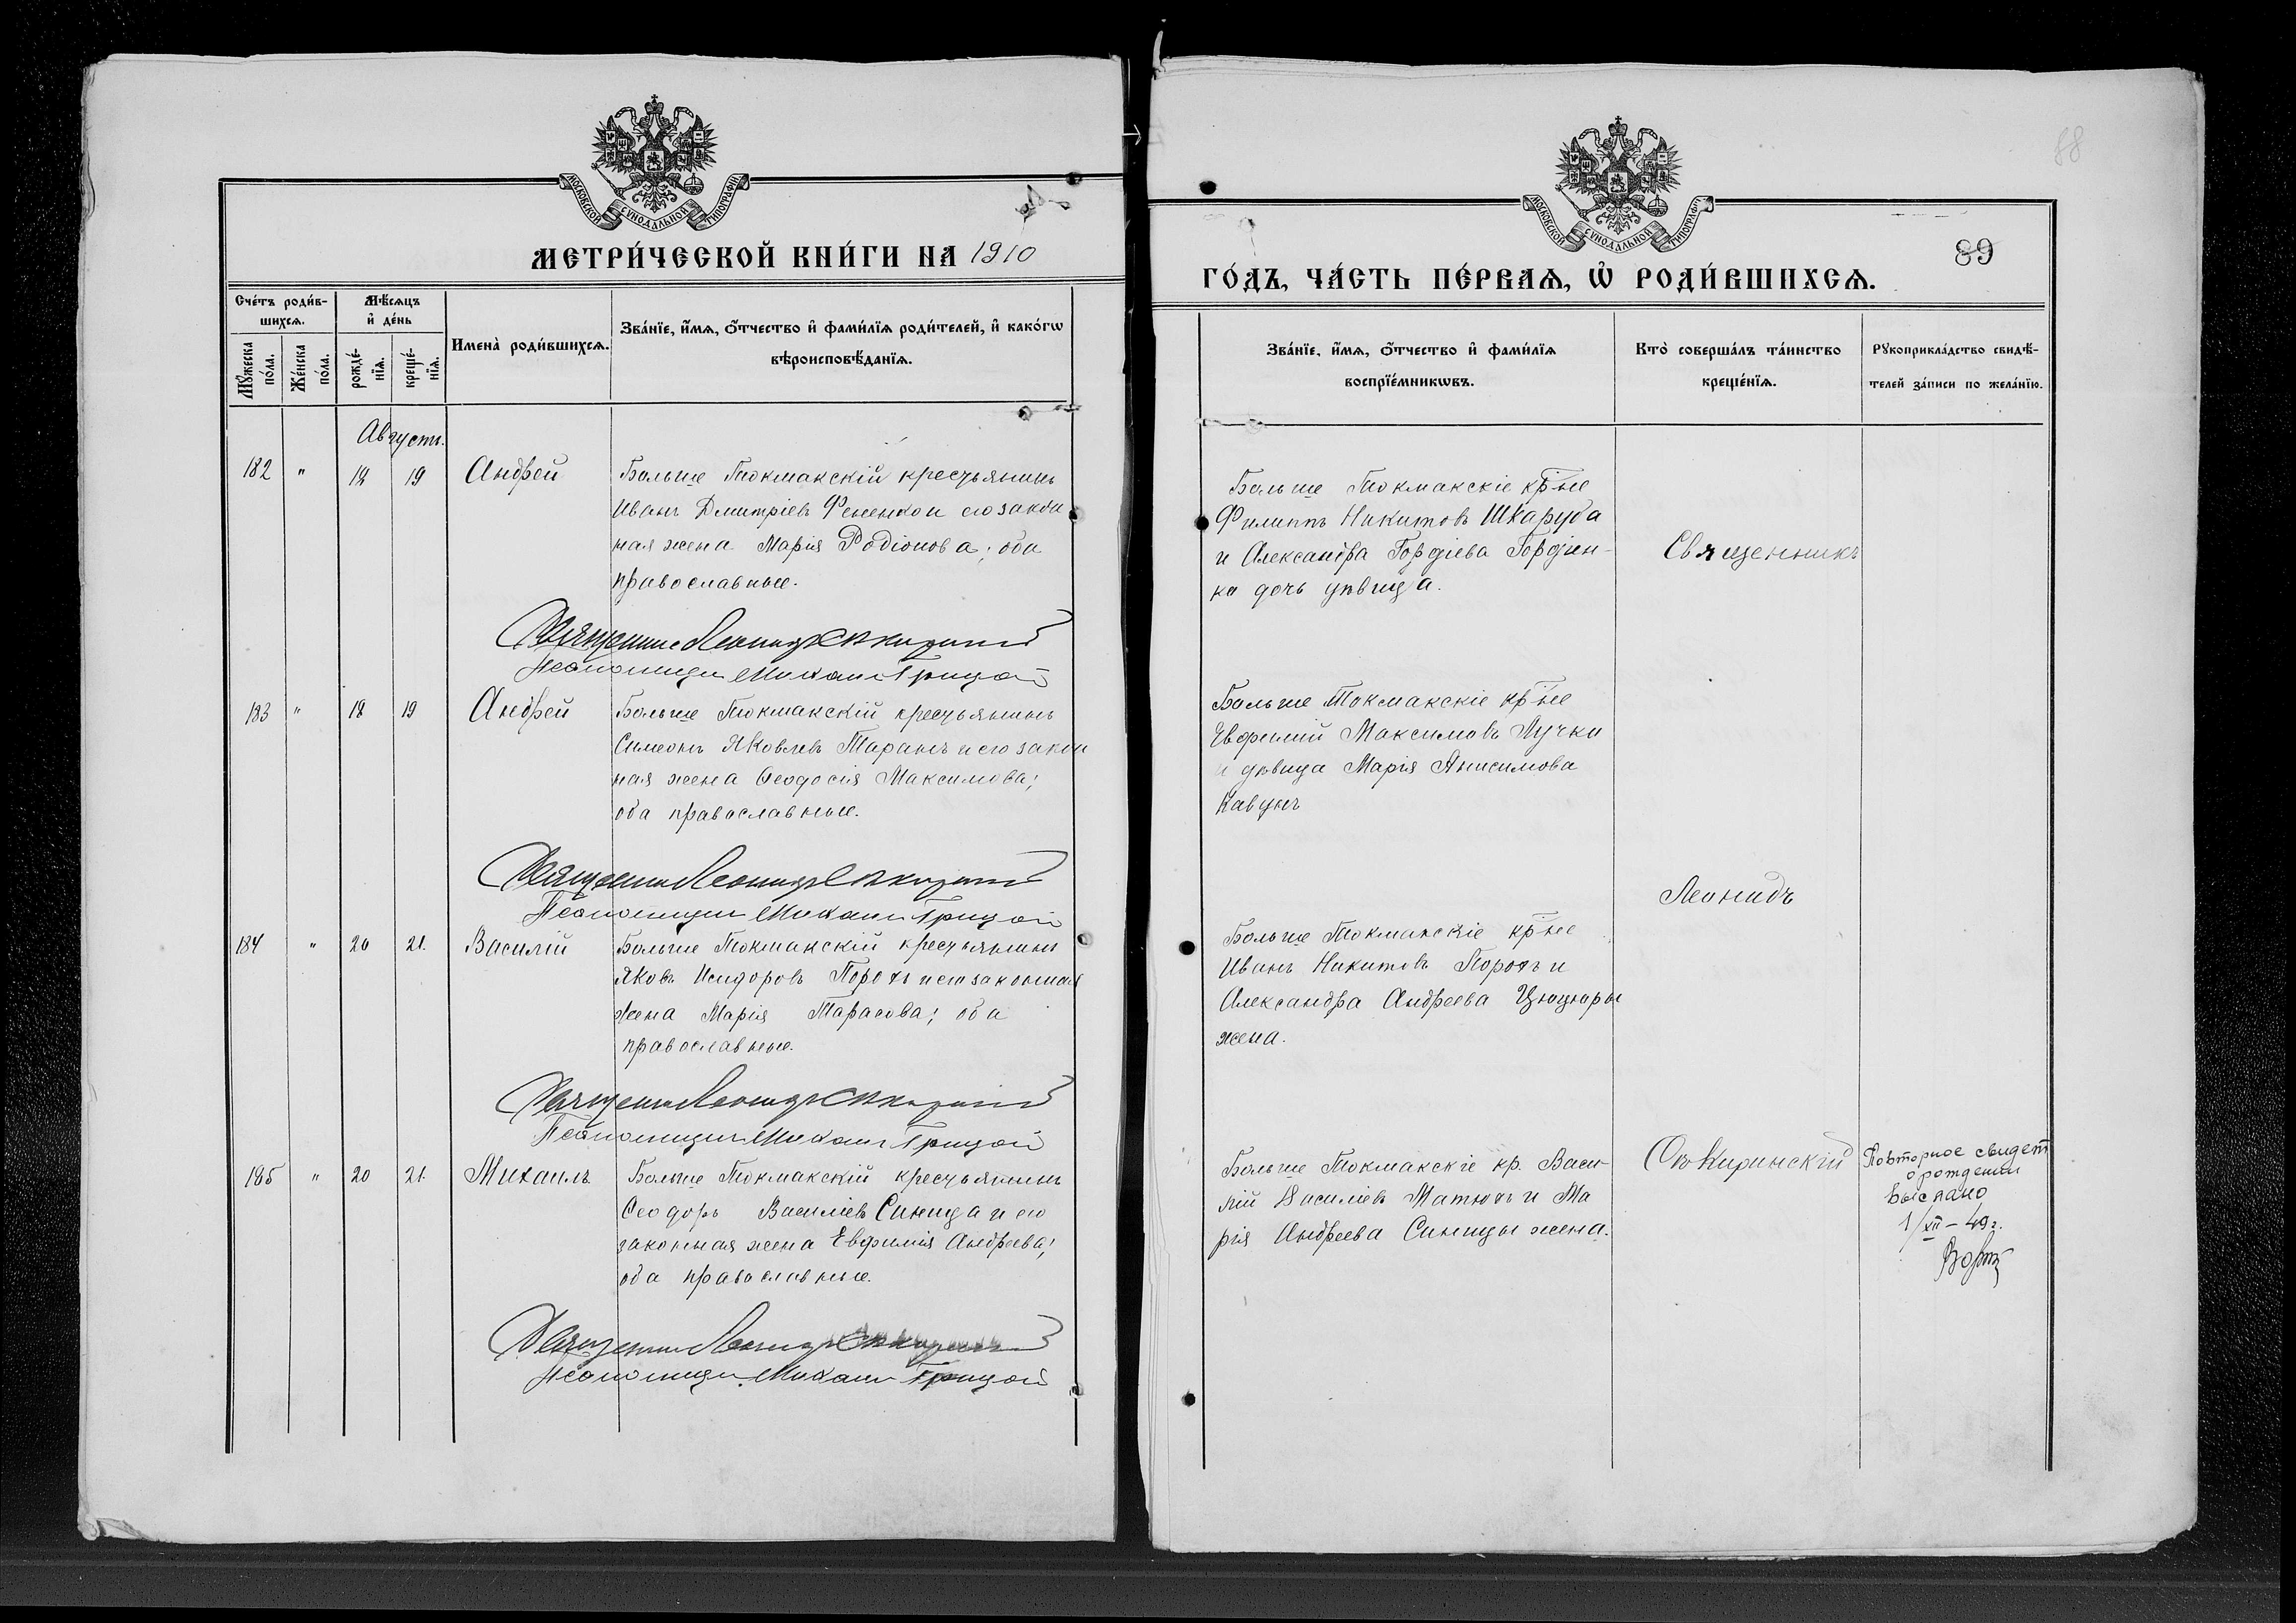 МОСКОВСКОЙ СУНОДАЛЬНОЙ ТИПОГРАФІИ
МЕТРИ́ЧЕСКОЙ КНИ́ГИ НА 1910
Сче́тъ роди́в-
шихсѧ.
Мѣ́сѧцъ
и҆ де́нь
Мꙋ́жеска
по́ла.
Же́нска
по́ла.
рожде́-
нїѧ.
креще́-
нїѧ.
Имена̀ роди́вшихсѧ.
Зва́нїе, и҆́мѧ, ѻ҆́тчество и҆ фами́лїѧ роди́телей, и҆ како́гѡ
вѣроисповѣ́данїѧ.
Августъ.
182 " 18 19 Андрей
Больше Токмакскій крестьянинъ
Иванъ Дмитріевъ Фененко и его закон
ная жена Марія Родіонова; оба
православные.
Священник Леонидъ Сѣкиринскій
Псаломщик Михаил Грицай
183 " 18 19 Андрей
Больше Токмакскій крестьянинъ
Симеонъ Яковлевъ Таранъ и его закон
ная жена Ѳеодосія Максимова;
оба православные.
Священник Леонидъ Сѣкиринскій
Псаломщик Михаил Грицай
184 " 20 21. Василій
Больше Токмакскій крестьянинъ
Яковъ Исидоровъ Порохъ и его законная
жена Марія Тарасова; оба
православные.
Священник Леонидъ Сѣкиринскій
Псаломщик Михаил Грицай
185 " 20 21. Михаилъ
Больше Токмакскій крестьянинъ
Ѳеодоръ Василіевъ Синица и его
законная жена Евфимія Андреева;
оба православные.
Священник Леонидъ Сѣкиринскій
Псаломщик Михаил Грицай
88
МОСКОВСКОЙ СУНОДАЛЬНОЙ ТИПОГРАФІИ
89
ГО́ДЪ, ЧА́СТЬ ПЕ́РВАѦ, Ѡ҆ РОДИ́ВШИХСѦ.
Зва́нїе, и҆́мѧ, ѻ҆́тчество и҆ фами́лїѧ
воспрїе́мникѡвъ.
Кто̀ соверша́лъ та́инство
креще́нїѧ.
Рꙋкоприкла́дство свидѣ́-
телей за́писи по жела́нїю.
Больше Токмакскіе кр̅ные
Филиппъ Никитовъ Шкаруба
и Александра Гордіева Гордіен-
ко дочь дѣвица.
Священникъ
Больше Токмакскіе кр̅ные
Евфимій Максимовъ Лучка
и дѣвица Марія Анисимова
Кавунъ
Леонидъ
Больше Токмакскіе кр̅ные
Иванъ Никитовъ Порохъ и
Александра Андреева Цюцюры
жена.
Больше Токмакскіе кр. Васи-
лій Василіевъ Матюхъ и Ма
рія Андреева Синицы жена.
Сѣкиринскій
Повторное свидет
о рождении
выслано
1/XII – 49 г.